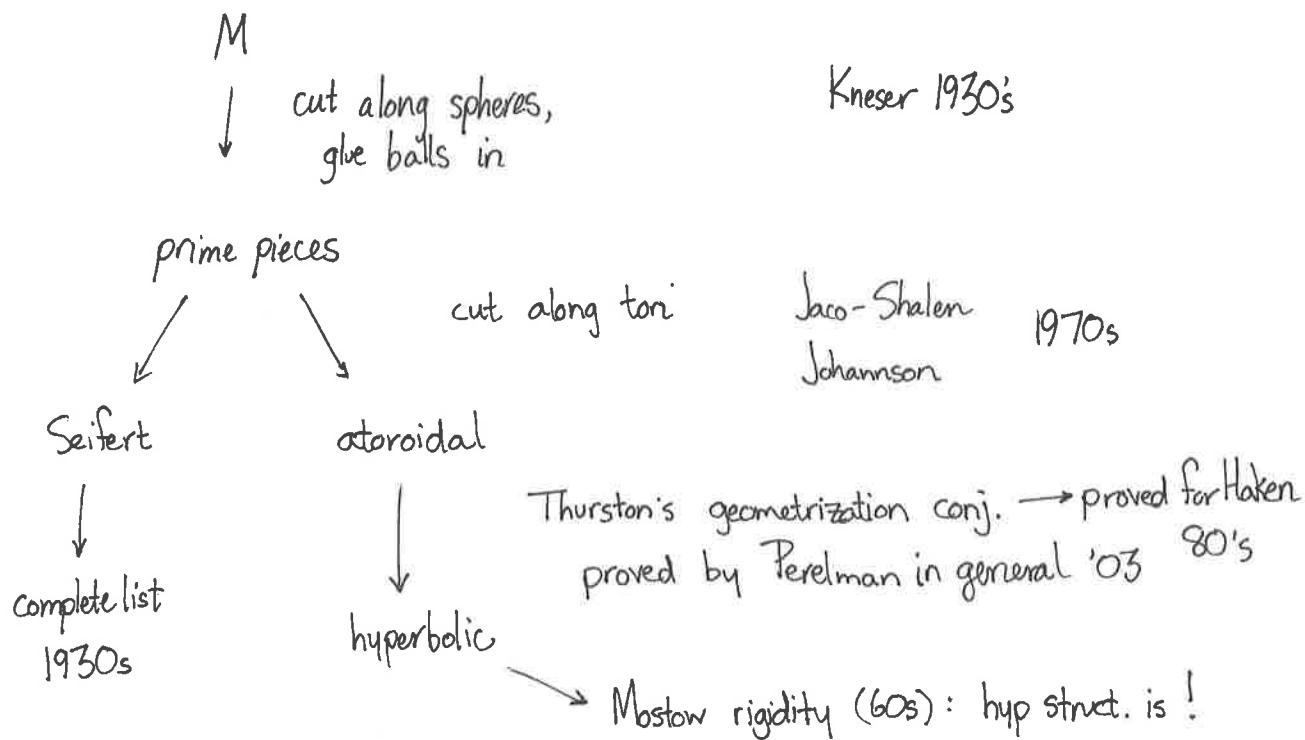 M
cut along spheres,
glue balls in
Kneser 1930's
prime pieces
cut along tori
Jaco-Shalen
Johannson
1970s
Seifert
atoroidal
Thurston's geometrization conj. → proved for Haken
80's
proved by Perelman in general '03
complete list
1930s
hyperbolic
Mostow rigidity (60s): hyp struct. is !